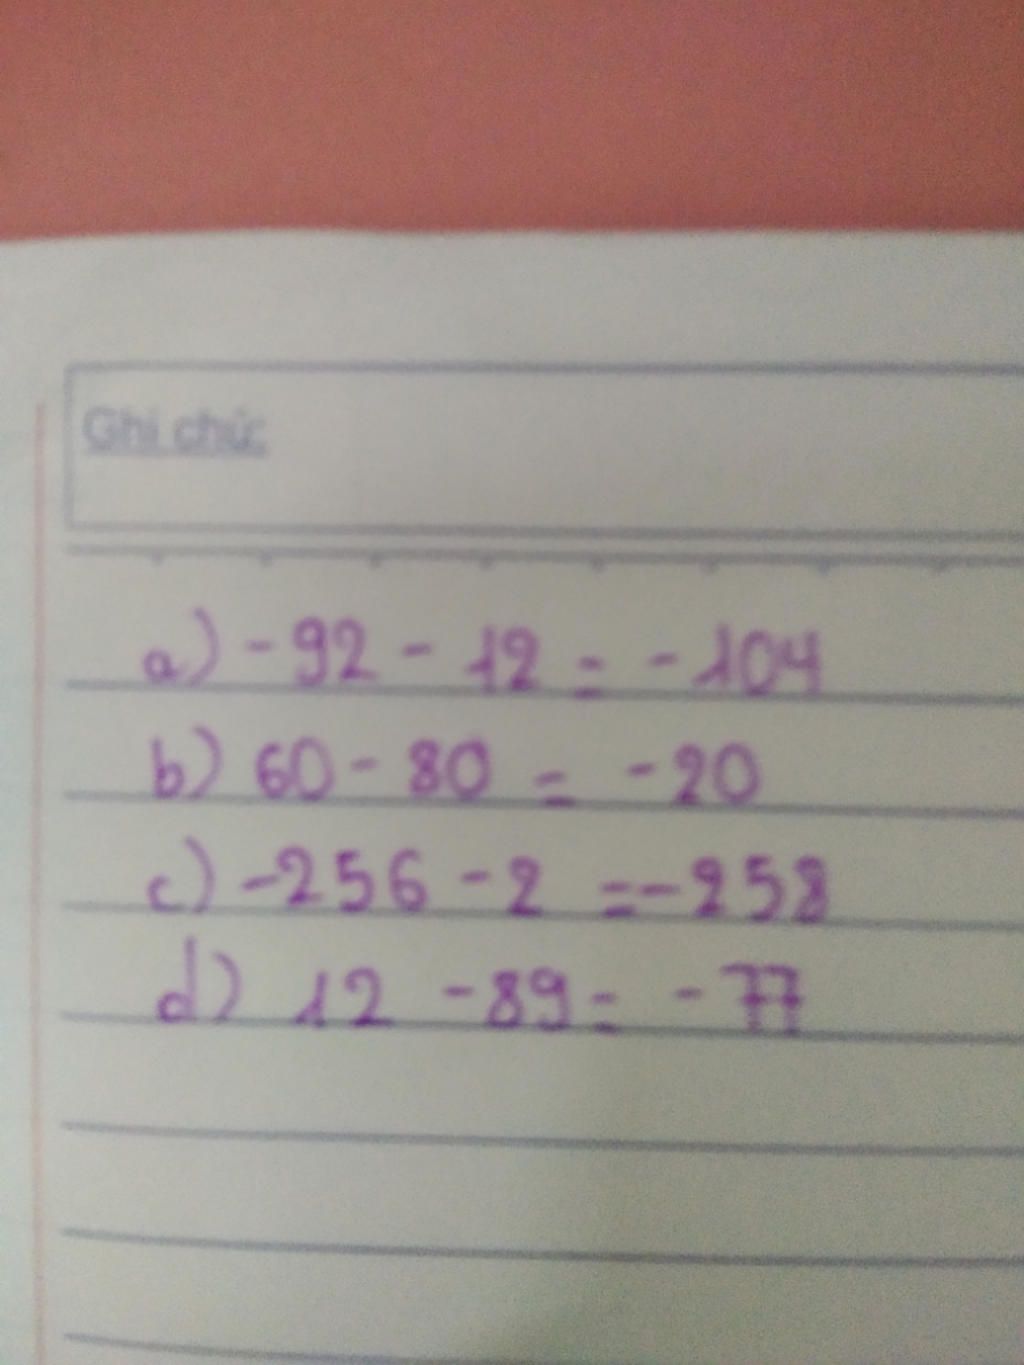 Ghi chú:
a) - 92 - 12 = - 104
b) 60 - 80 = - 20
c) -256 - 2 = - 258
d) 12 - 89 = - 77